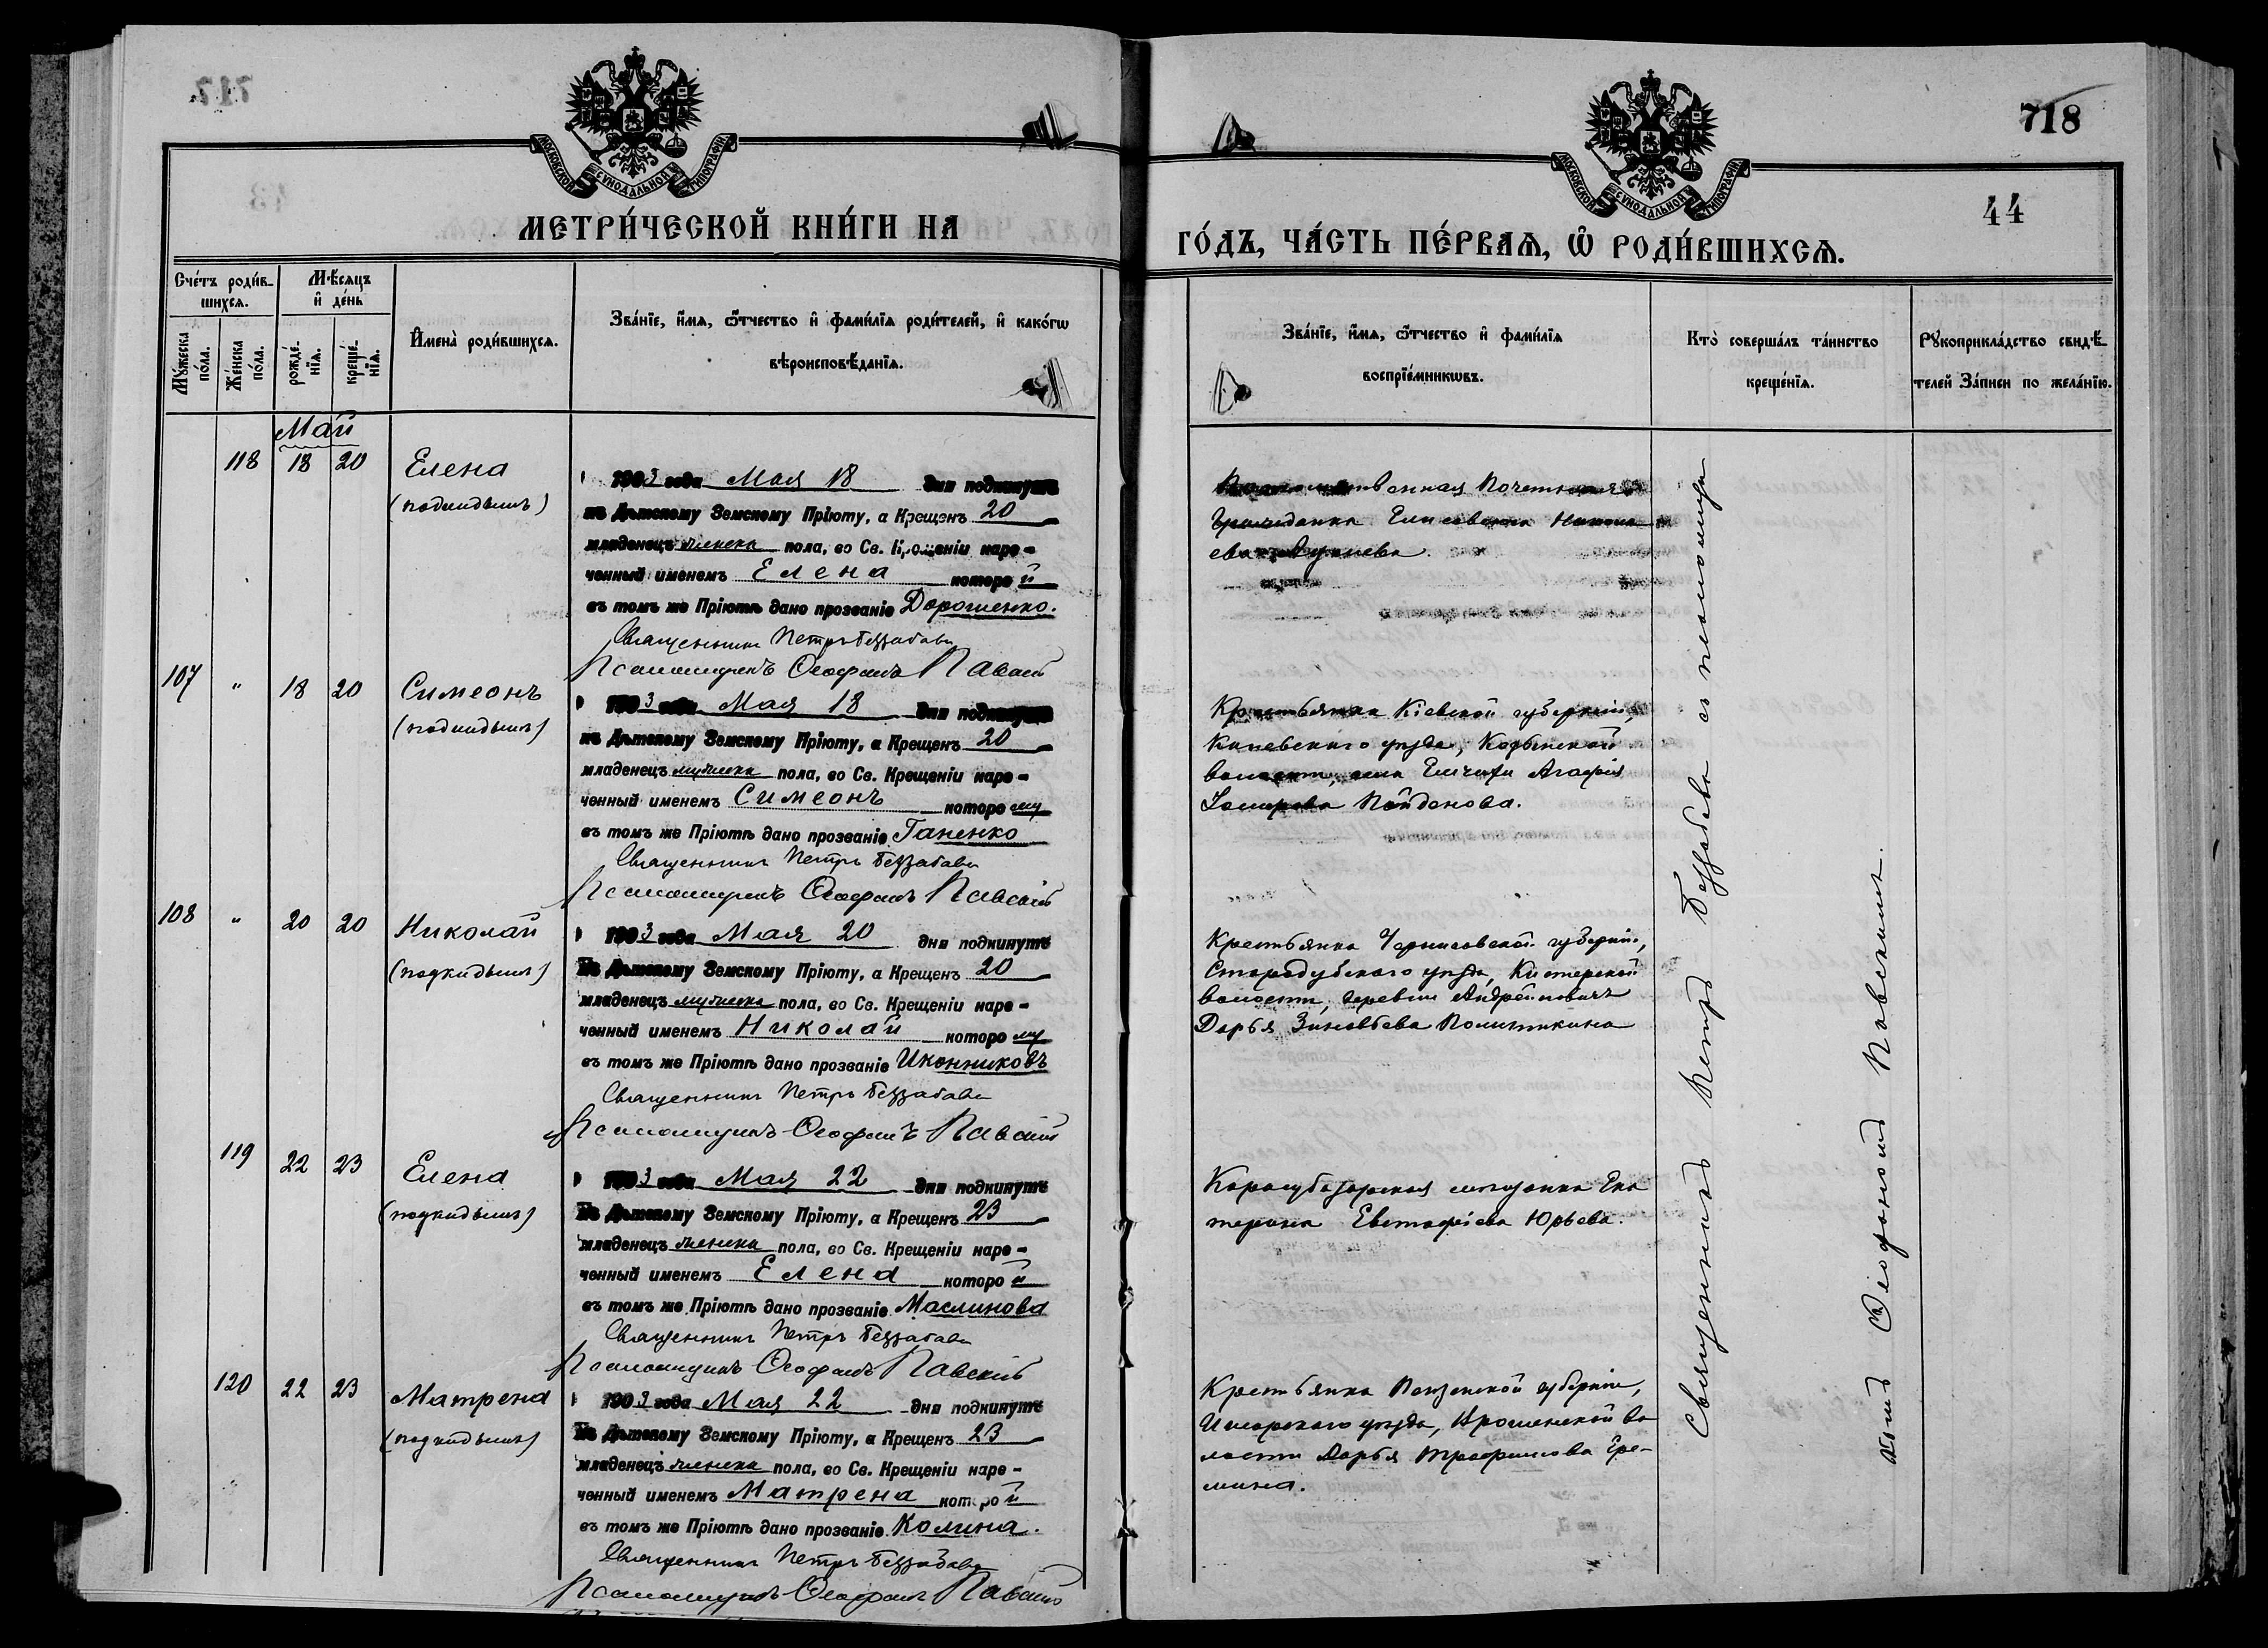 717
718
МОСКОВСКОЙ СУНОДАЛЬНОЙ ТИПОГРАФІИ
МОСКОВСКОЙ СУНОДАЛЬНОЙ ТИПОГРАФІИ
43
44
МЕТРИ́ЧЕСКОЙ КНИ́ГИ НА
ГО́ДЪ, ЧА́СТЬ ПЕ́РВАѦ, Ѽ РОДИ́ВШИХСѦ.
Сче́тъ роди́в-
шихсѧ.
Мꙋ́жеска по́ла.
Же́нска по́ла.
Мѣ́сѧцъ
и҆ де́нь
рожде́нїѧ.
креще́нїѧ.
И҆мена̀ роди́вшихсѧ.
Зва́нїе, и҆́мѧ, ѻ҆́тчество и҆ фами́лїѧ роди́телей, и҆ како́гѡ
вѣроисповѣ́данїѧ.
Зва́нїе, и҆́мѧ, ѻ҆́тчество и҆ фами́лїѧ
воспрїе́мникѡвъ.
Кто̀ соверша́лъ та́инство
креще́нїѧ.
Рꙋкоприкла́дство свидѣ́-
телей За́писи по жела́нїю.
Май
118 18 20 Елена
(подкидышъ)
1903 года Мая 18 дня подкинутъ
къ Дѣтскому Земскому Пріюту, а Крещенъ 20
младенецъ женска пола, во Св. Крещеніи наре-
ченный именемъ Елена которой
въ томъ же Пріютѣ дано прозваніе Дорошенко.
Священникъ Петръ Беззабава
Псаломщикъ Ѳеофанъ Павскій
Почетная
Гражданка Елисавета Никола
ева
107 " 18 20 Симеонъ
(подкидышъ)
1903 года Мая 18 дня подкинутъ
къ Дѣтскому Земскому Пріюту, а Крещенъ 20
младенецъ мужска пола, во Св. Крещеніи наре-
ченный именемъ Симеонъ которому
въ томъ же Пріютѣ дано прозваніе Ганенко
Священникъ Петръ Беззабава
Псаломщикъ Ѳеофанъ Павскій
Крестьянка Кіевской губерніи,
Каневского уѣзда,
волости, села Агафія
108 " 20 20 Николай
(подкидышъ)
1903 года Мая 20 дня подкинутъ
къ Дѣтскому Земскому Пріюту, а Крещенъ 20
младенецъ мужска пола, во Св. Крещеніи наре-
ченный именемъ Николай которому
въ томъ же Пріютѣ дано прозваніе Иконниковъ
Священникъ Петръ Беззабава
Псаломщикъ Ѳеофанъ Павскій
Крестьянка Черниговской губерніи,
Стародубского уѣзда, Кистерской
волости, деревни Андрейковичъ
Дарья Зиновьева
119 22 23 Елена
(подкидышъ)
1903 года Мая 22 дня подкинутъ
къ Дѣтскому Земскому Пріюту, а Крещенъ 23
младенецъ женска пола, во Св. Крещеніи наре-
ченный именемъ Елена которой
въ томъ же Пріютѣ дано прозваніе Маслинова
Священникъ Петръ Беззабава
Псаломщикъ Ѳеофанъ Павскій
Карасубазарская мѣщанка Ека
терина Евстафіева Юрьева.
120 22 23 Матрена
(подкидышъ)
1903 года Мая 22 дня подкинутъ
къ Дѣтскому Земскому Пріюту, а Крещенъ 23
младенецъ женска пола, во Св. Крещеніи наре-
ченный именемъ Матрена которой
въ томъ же Пріютѣ дано прозваніе Колина.
Священникъ Петръ Беззабава
Псаломщикъ Ѳеофанъ Павскій
Крестьянка Пензенской губерніи,
Инсарского уѣзда, во
лости Дарья Трофимова Гре-
мина.
Священникъ Петръ Беззабава съ псаломщи
комъ Ѳеофаномъ Павскимъ.